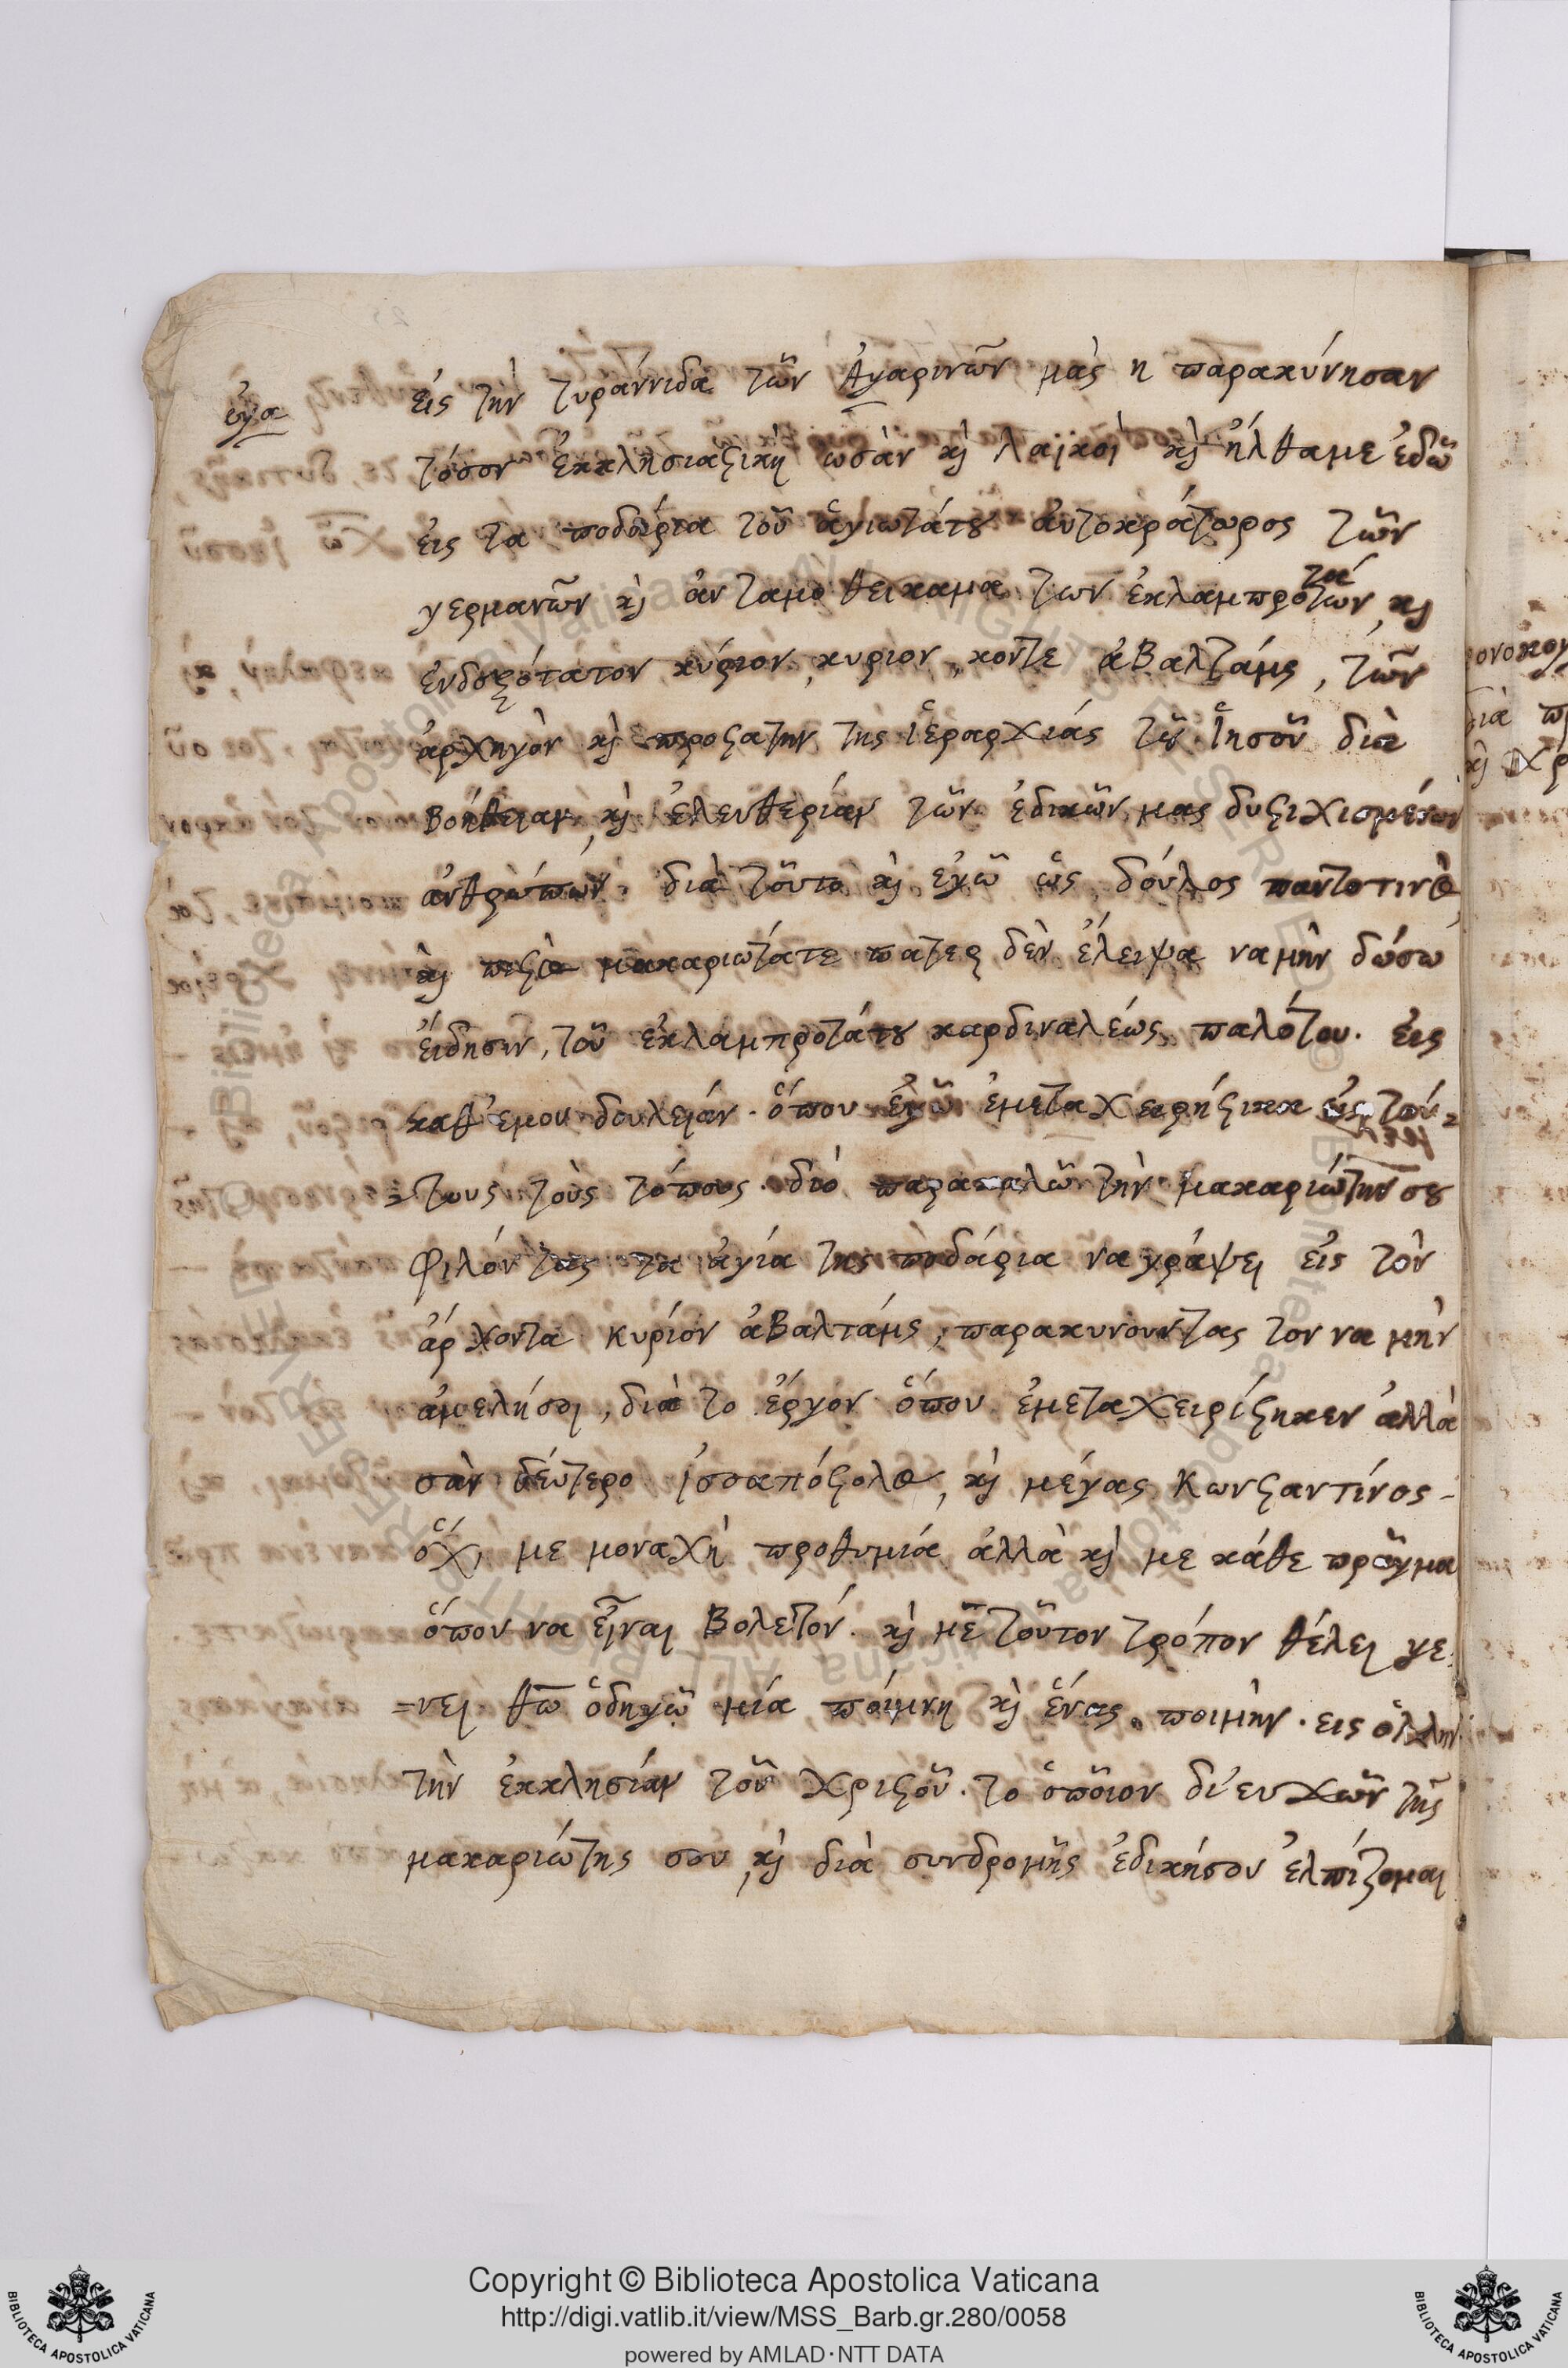 εἰς τὴν τυράννιδα τῶν Ἀγαρινῶν μὰς η παρακύνησαν
τόσον ἐκκλησιαστικὴ ωσὰν κὶ λαϊκοὶ κὶ ἤλθαμε ἐδῶ
εἰς τα ποδάρια τοῦ ἁγιωτάτου ἀυτοκράτωρος τῶν
γερμανῶν κὶ ἀνταμοθεικαμα των ἐκλαμπρότατων, κὶ
ἐνδοξότατον κύριον, κυριον, κοντε ἀΒαλτάμς, τῶν
ἀρχηγὸν κὶ προστατην της ἱεραρχιάς τοῦ Ἰησοῦ διὰ
Βοήθειαν, κὶ ἐλευθερίαν τῶν ἐδικῶν μας δυστιχισμένων
ἀνθρώπων. διὰ τοῦτο κὶ εγῶ ὡς δούλος παντοτινὸς
κὶ πιστὸς μακαριωτάτε πάτερ δὲν ἔλειψα να μὴν δώσω
ἔιδησιν, τοῦ ἐκλαμπροτάτου καρδιναλέως παλότου. ἐις
καθ' εμου δουλειάν. ὅπου ἐγῶ ἐμεταχειρήστικα εἰς τού=
=τους τοὺς τόπους. διὸ παρακαλῶ τὴν μακαριώτην σου
Φιλόντας τα ἁγία της ποδάρια να γράψει εἰς τὸν
ἄρχοντα κυρίον ἀΒαλτάμς, παρακυνουντας τον να μὴν
ἀμελήσει, διὰ το ἔργον ὅπου ἐμεταχειρίστηκεν ἀλλὰ
σὰν δέυτερο ἰσσαπόστολος, κὶ μέγας Κωνσταντίνος -
ὄχι με μοναχὴ προθυμιά ἀλλὰ κὶ με κάθε πρᾶγμα
ὅπου να εἶναι Βολετόν. κὶ μὲ τοῦτον τρόπον θέλει γε
=νει θῶ ὁδηγῶ μία ποίμνη κὶ ἕνας ποιμὴν. εις ὅλλην
τὴν ἐκκλησίαν τοῦ Χριστοῦ. το ὁποῖον δι' ευχῶν τῆς
μακαριώτης σου, κὶ διὰ συνδρομῆς ἐδικήσου ἐλπίζομαι
Copyright © Biblioteca Apostolica Vaticana
http://digi.vatlib.it/view/MSS_Barb.gr.280/0058
powered by AMLAD·NTT DATA